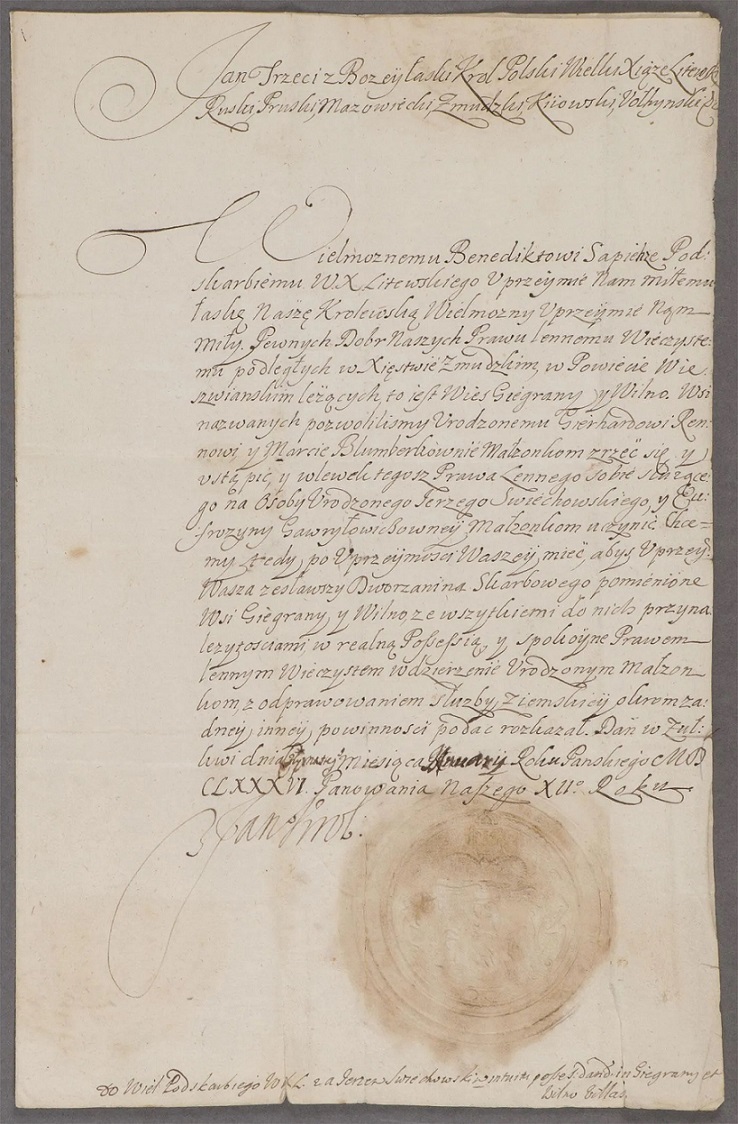 Jan Trzeci z Bozey Łaski Krol Polski Wielki Xiąze Litewsk
Ruski, Pruski, Mazowiecki, Zmudzki, Kiiowski, Vołhynski
Wielmoznemu Benediktowi Sapieże Pod:
skarbiemu W.X Litewskiego Vprzeymie Nam miłemu
łaskę Naszę Krolewską Wielmozny Vprzeymie Nąm
miły. Pewnych Dobr Naszych Prawu lennemu Wieczyste:
mu podległych w Xięstwie Zmudzkim, w Powiecie Wie
szwianskim leżących, to iest Wies Giegrany y Wilno. Wsi
nazwanych pozwolilismy Vrodzonemu Gierhardowi Ren:
nowi y Marcie Blumberkownie Małzonkom zrzec się y
vstąpić, y wlewek tegosz Prawa Lennego Sobie słuzące:
go na Osoby Vrodzonego Jerzego Swiechowskiego, y Eu:
frozyny Gawryłowickowney Małzonkom uczynic. Chce=
my tedy po Vprzeymosci Waszey mieć, abys Vprzey:
Wasza zesławszy Dworzanina Skarbowego pomienione
Wsi Giegrany, y Wilno, ze wszytkiemi do nich przyna
lezytosciami, w realną Possessią, y spokoyne Prawem
lennym Wieczystem w dzierzenie Vrodzonym Małzon
kom, z odprawowaniem słuzby, Ziemskiey okrom za:
dney inney powinnosci podac rozkazał. Dan w Zul:
kwi dnia miesiąca Januarij Roku Panskiego MD
CLXXXVI. Panowania Naszego XIIº Roku
Jan Krol:
do Wiel Podskarbiego WXL. za Jerzem Swiechowskim intuitu posses: dand: in Giegrany et
Wilno Villas